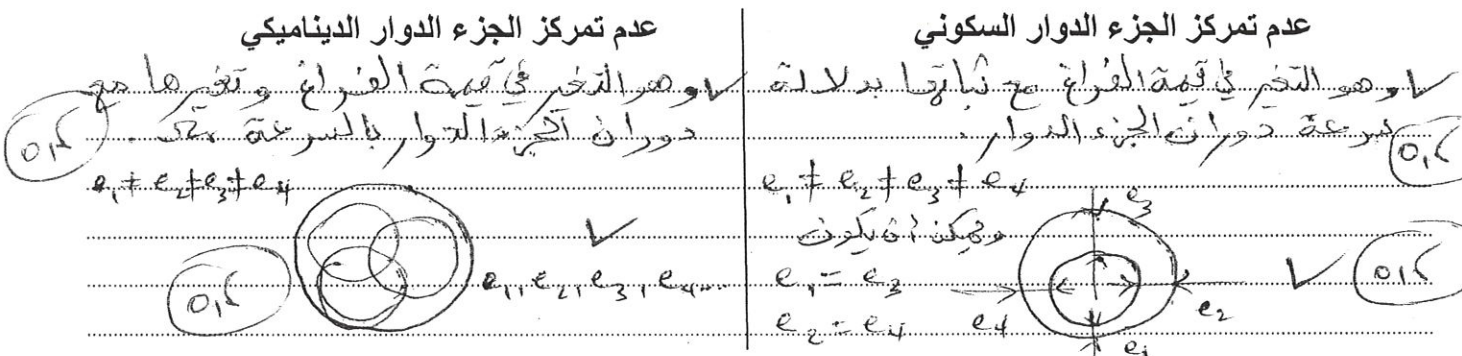 عدم تمركز الجزء الدوار السكوني
وهو التغير في قيمة الفراغ مع ثباتها بدلالة
سرعة دوران الجزء الدوار.
0,5
e₁ ≠ e₂ ≠ e₃ ≠ e₄
ويمكن أن يكون
e₁ = e₃
e₂ = e₄
e₃
e₄
e₂
e₁
0,5
عدم تمركز الجزء الدوار الديناميكي
وهو التغير في قيمة الفراغ وتغيرها مع
دوران الجزء الدوار بالسرعة
0,5
e₁ ≠ e₂ ≠ e₃ ≠ e₄
e₁, e₂, e₃, e₄...
0,5